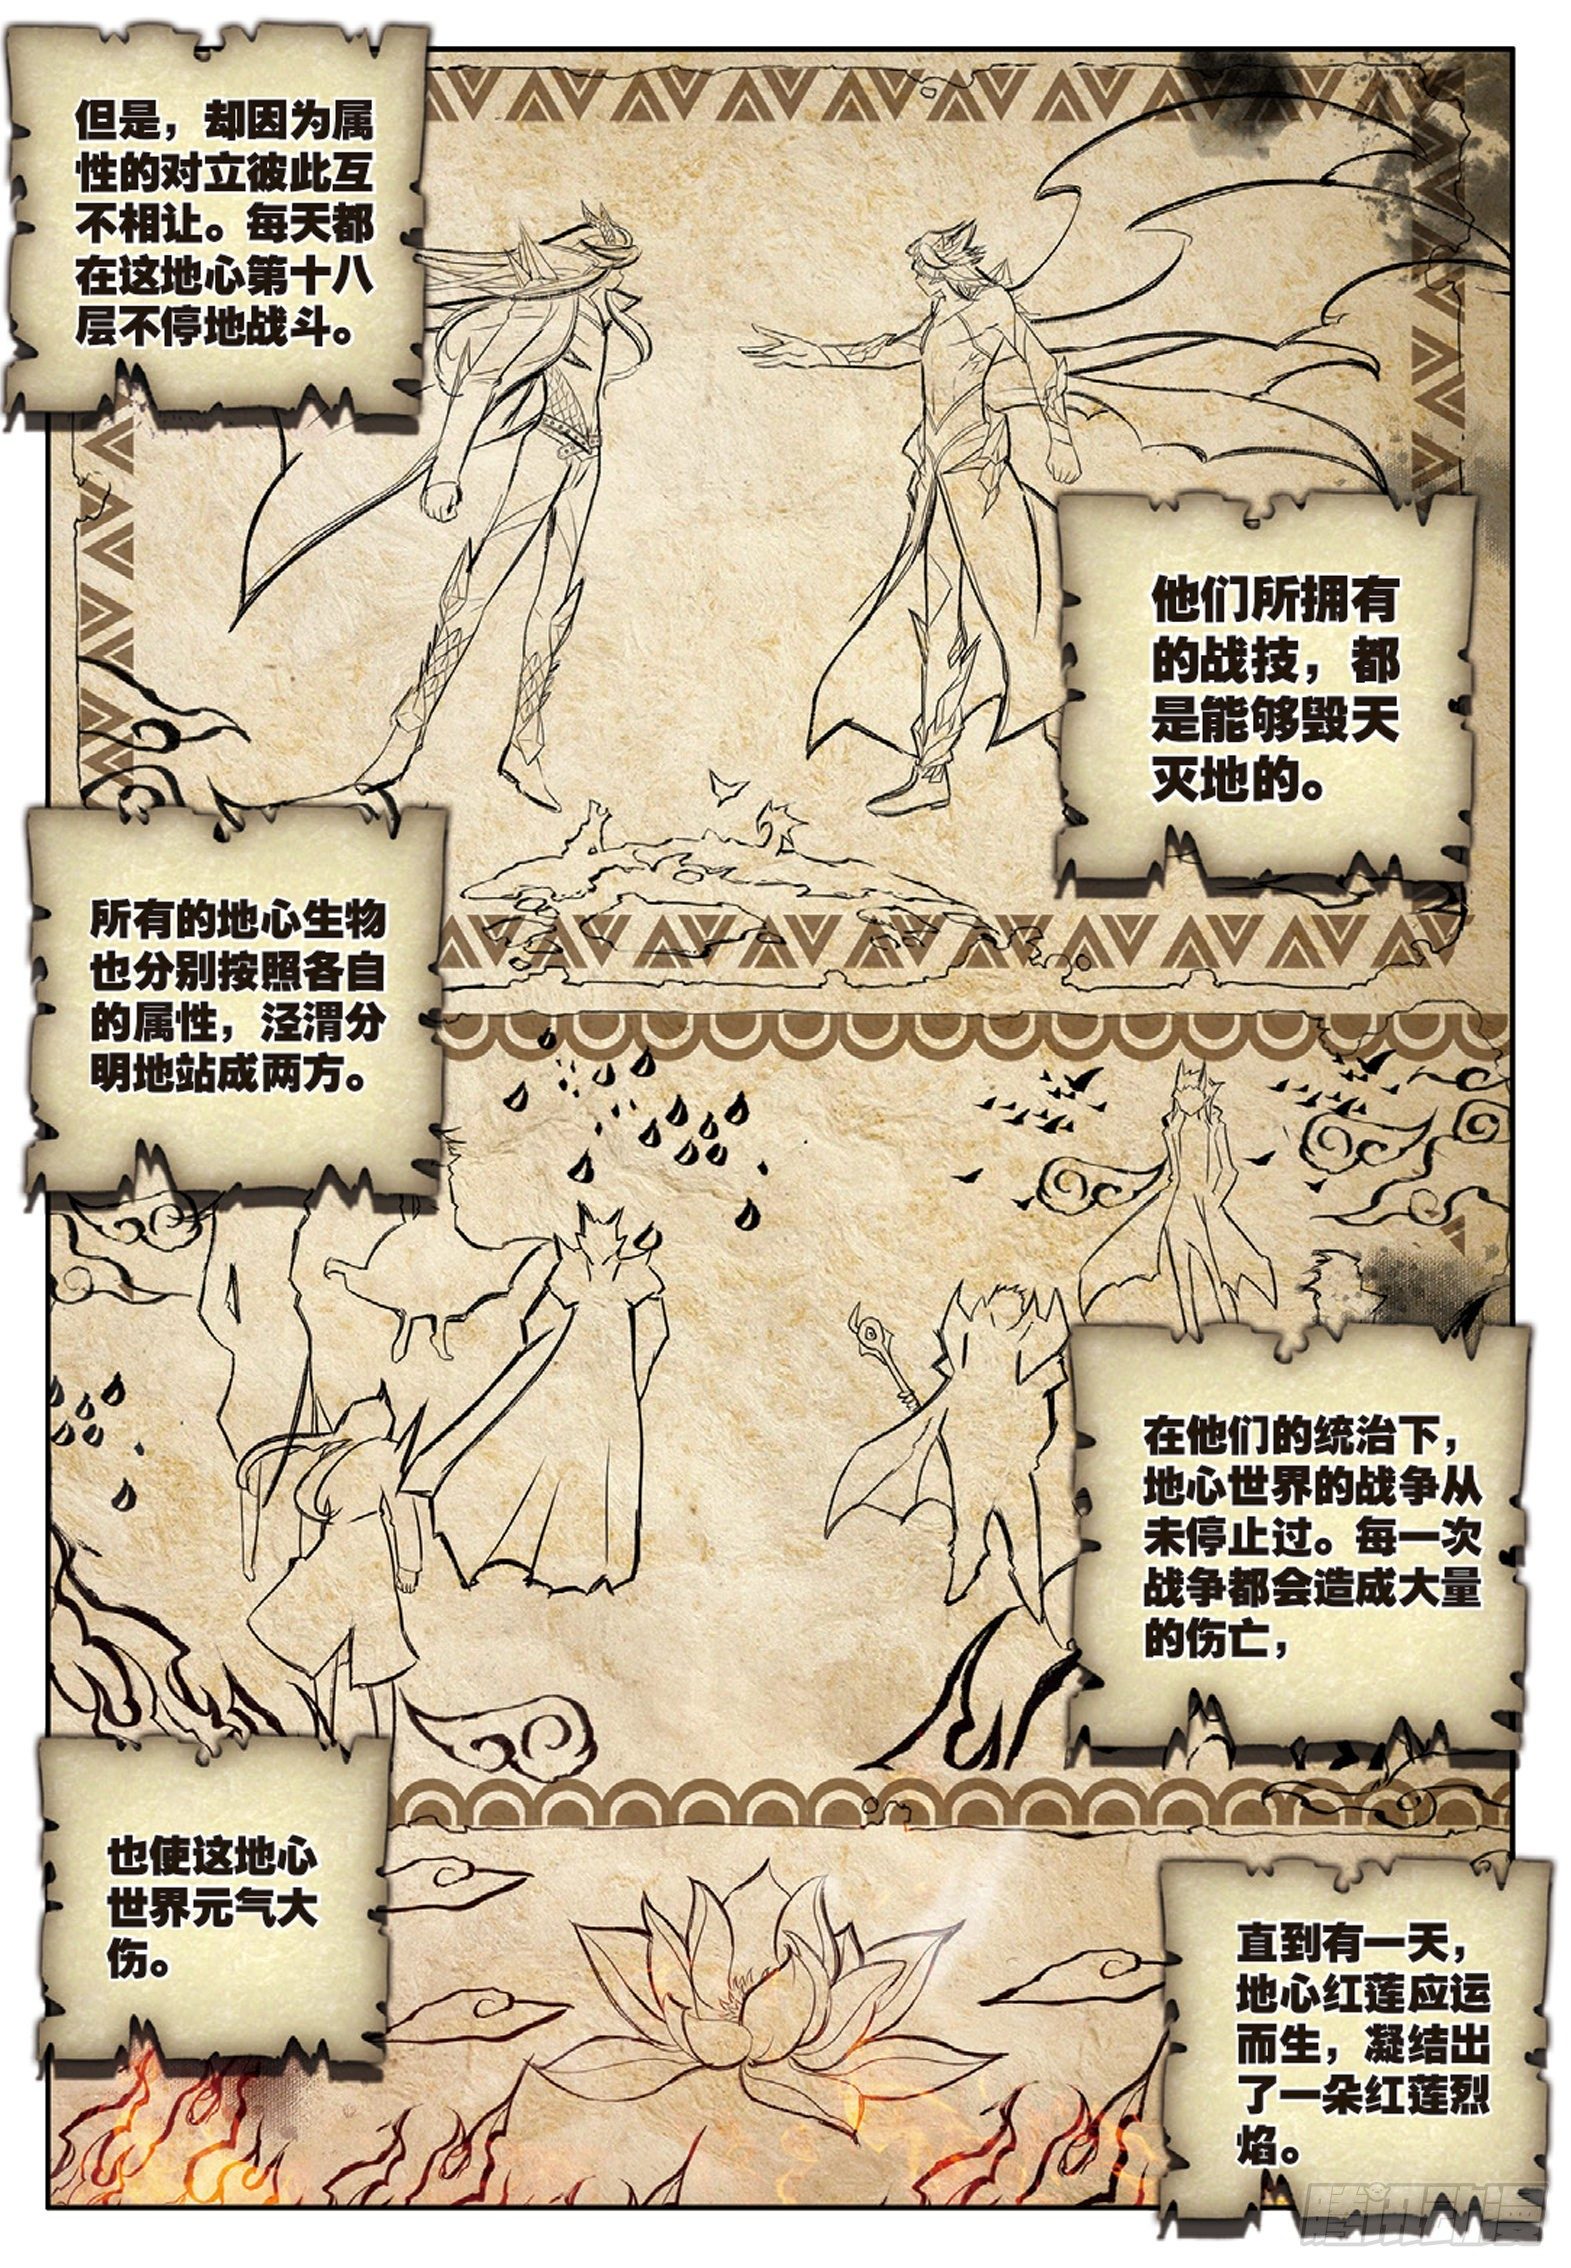 但是，却因为属
性的对立彼此互
不相让。每天都
在这地心第十八
层不停地战斗。
他们所拥有
的战技，都
是能够毁天
灭地的。
所有的地心生物
也分别按照各自
的属性，泾渭分
明地站成两方。
在他们的统治下，
地心世界的战争从
未停止过。每一次
战争都会造成大量
的伤亡，
也使这地心
世界元气大
伤。
直到有一天，
地心红莲应运
而生，凝结出
了一朵红莲烈
焰。
腾讯动漫